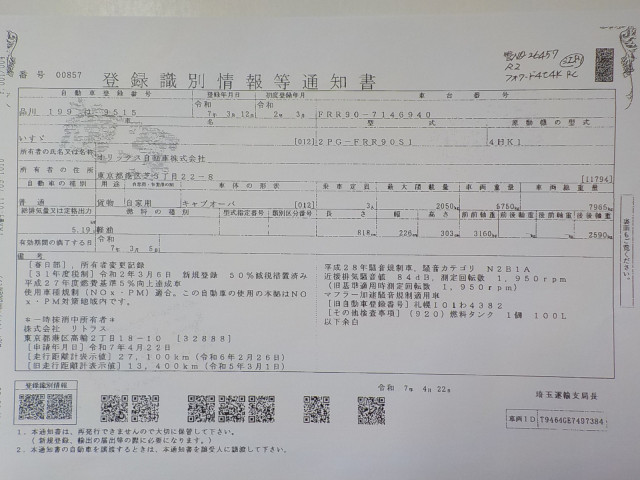 番号 00857
登録識別情報等通知書
自動車登録番号
登録年月日
初度登録年月
車台番号
品川 199
9515
令和
7年 3月12日
令和
2年 3月
FRR90-7146940
型式
原動機の型式
いすゞ
[012]
2PG-FRR90S1
4HK1
所有者の氏名又は名称
オリックス自動車株式会社
所有者の住所
東京都港区芝3丁目22-8
[11794]
自動車の種別
用途
自家用・事業用の別
車体の形状
乗車定員
最大積載量
車両重量
車両総重量
普通
貨物
自家用
キャブオーバ
[012]
3人
2050kg
5750kg
7965kg
総排気量又は定格出力
燃料の種類
型式指定番号
類別区分番号
長さ
幅
高さ
前前軸重
前後軸重
後前軸重
後後軸重
5.19
軽油
818cm
226cm
303cm
3160kg
2590kg
有効期間の満了する日
令和
7年 3月 5日
備考
[春日部], 所有者変更記録
[31年度税制] 令和2年3月6日 新規登録 50%減税措置済み
平成27年度燃費基準5%向上達成車
使用車種規制(NOx・PM)適合。この自動車の使用の本拠はNO
x・PM対策地域内です。
*一時抹消中所有者*
株式会社 リトラス
東京都港区高輪2丁目18-10 [32888]
[申請年月日]令和7年4月22日
[走行距離計表示値] 27,100km (令和6年2月26日)
[旧走行距離計表示値] 13,400km (令和5年3月1日)
平成28年騒音規制車、騒音カテゴリ N2B1A
近接排気騒音値 84dB, 測定回転数 1,950rpm
(旧基準適用時測定回転数 1,950rpm)
マフラー加速騒音規制適用車
[旧自動車登録番号]札幌101わ4382
[その他検査事項] (920) 燃料タンク 1個 100L
以下余白
令和 7年 4月 22日
埼玉運輸支局長
登録識別情報
車両ID
T9464GE7497384
1. 本通知書は、再発行できませんので大切に保管して下さい。
(新規登録、輸出の届出等の際に必要になります。)
2. 本通知書の自動車を譲渡するときは、本通知書を譲受人に譲渡して下さい。
裏面もご覧ください。